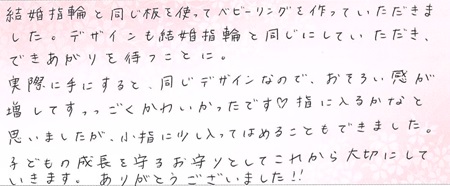 結婚指輪と同じ板を使ってベビーリングを作っていただきま
した。デザインも結婚指輪と同じにしていただき、
できあがりを待つことに。
実際に手にすると、同じデザインなので、おそろい感が
増してすっっごくかわいかったです♡指に入るかなと
思いましたが、小指に少し入ってはめることもできました。
子どもの成長を守るお守りとしてこれから大切にして
いきます。ありがとうございました!!